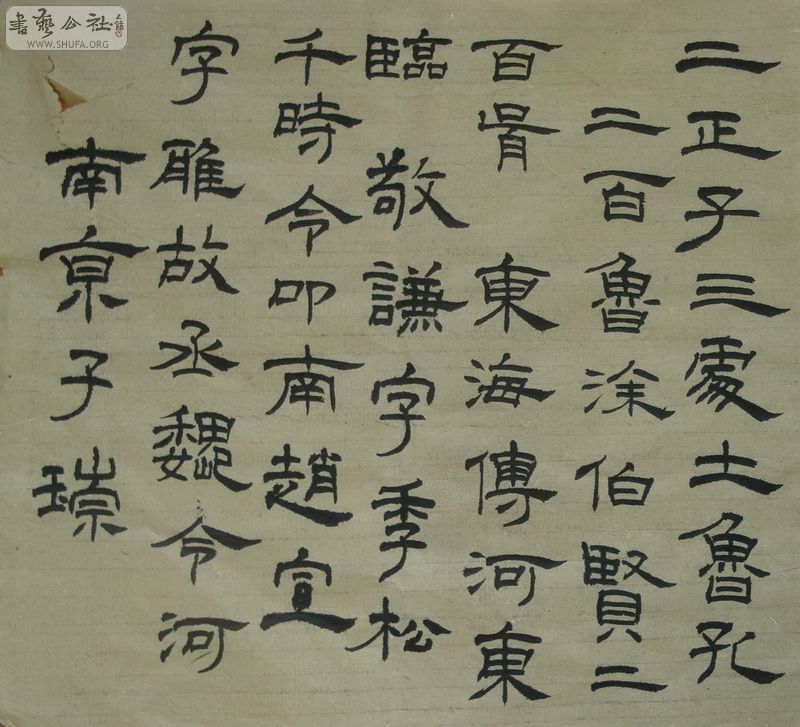 書藝公社
WWW.SHUFA.ORG
二正子三處土魯孔
二百魯涂伯賢二
百胥東海傳河東
臨敬謙字季松
千時令印南趙宣
字雅故丞魏令河
南京子琮